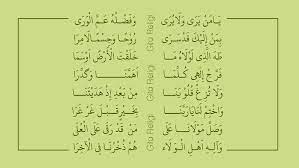 يَا مَنْ يَرَى وَلَا يُرَى وَفَضْلُهُ عَمَّ الْوَرَى
بِمَنْ إِلَيْكَ قَدْ سَرَى رُوْحًا وَجِسْمًا لَا مِرَا
طٰهَ الَّذِي لَوْلَاهُ مَا خَلَقْتَ الْأَرْضَ أَوْ سَمَا
فَرِّجْ إِلٰهِي كُلَّمَا أَهَمَّنَا وَكَدَّرَا
وَلَا تُزِغْ قُلُوْبَنَا مِنْ بَعْدِ إِذْ هَدَيْتَنَا
وَاخْتِمْ لَنَا يَا رَبَّنَا بِخَيْرٍ قَبِلَ عَرَا
وَصَلِّ مَوْلَانَا عَلَى مَنْ قَدْ رَقَى عَلَى الْعُلَى
وَآلِهِ أَهْلِ الْوَلَاءِ هُمْ ذُخْرُنَا فِي الْآخِرَا
Gta Religi
Gta Religi
Gta Religi